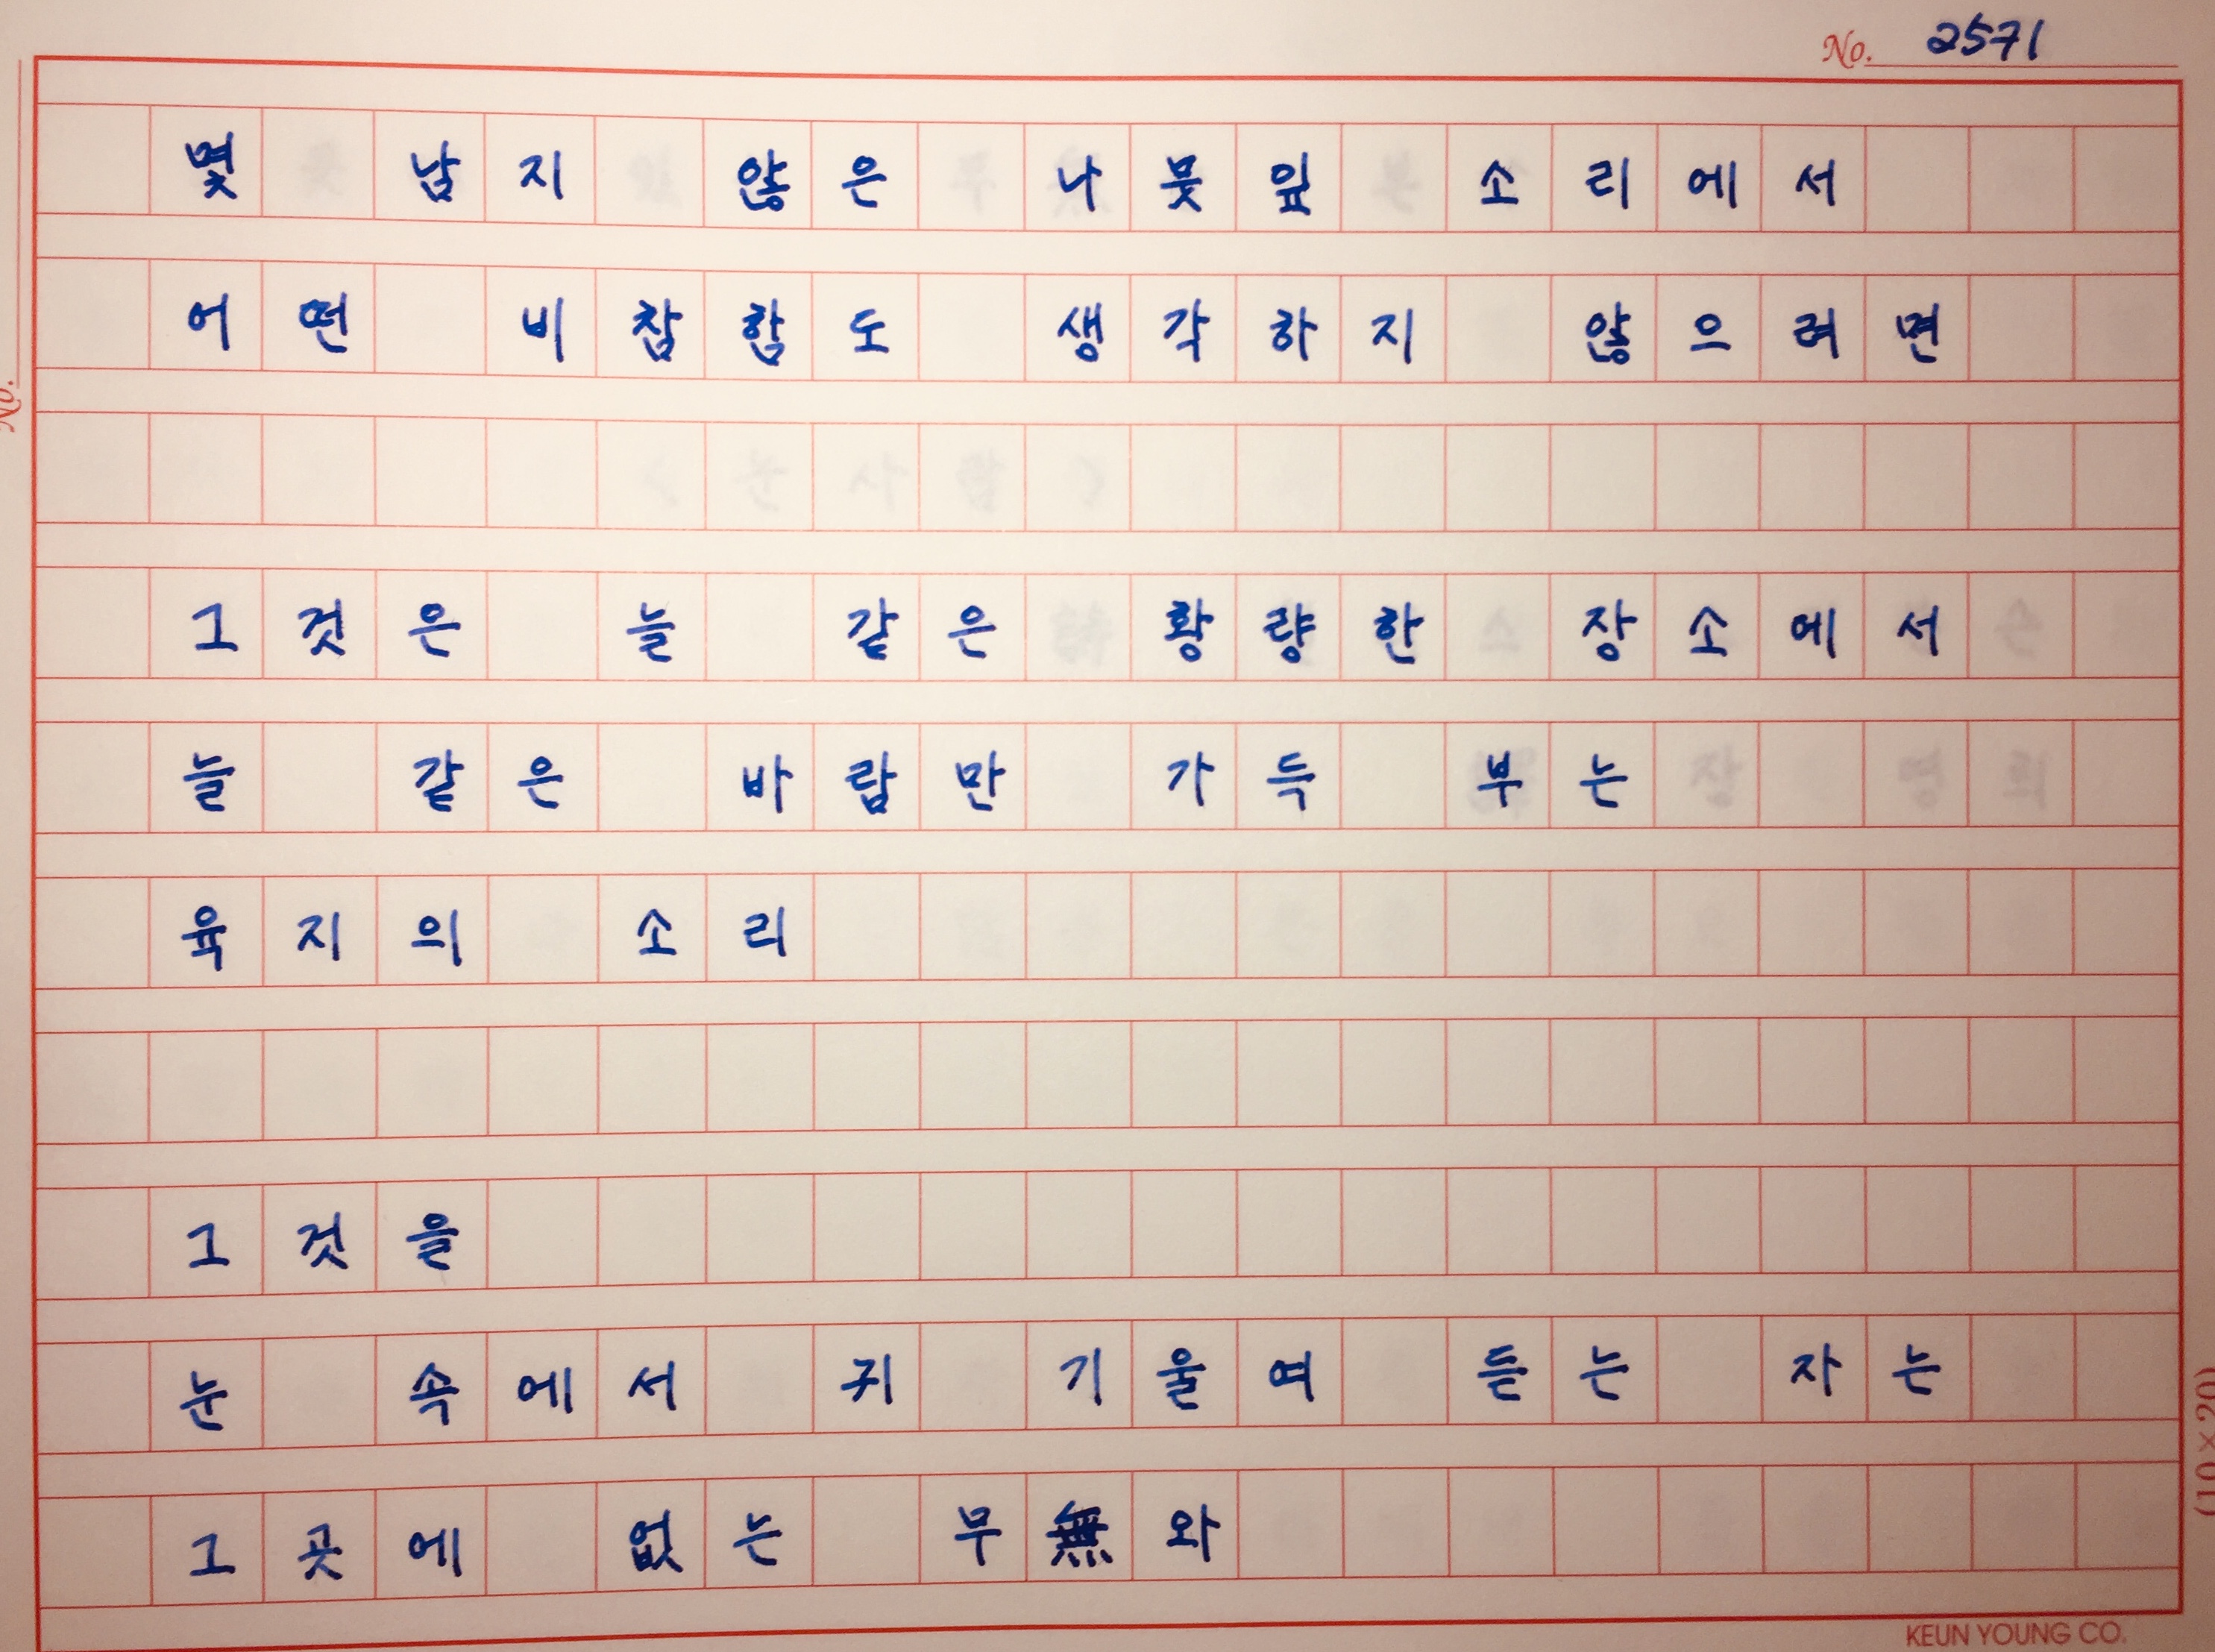 No. 2571
몇 남지 않은 나뭇잎 소리에서
어떤 비참함도 생각하지 않으려면
그것은 늘 같은 황량한 장소에서
늘 같은 바람만 가득 부는
육지의 소리
그것을
눈 속에서 귀 기울여 듣는 자는
그곳에 없는 무無와
KEUN YOUNG CO.
No.
(10×20)